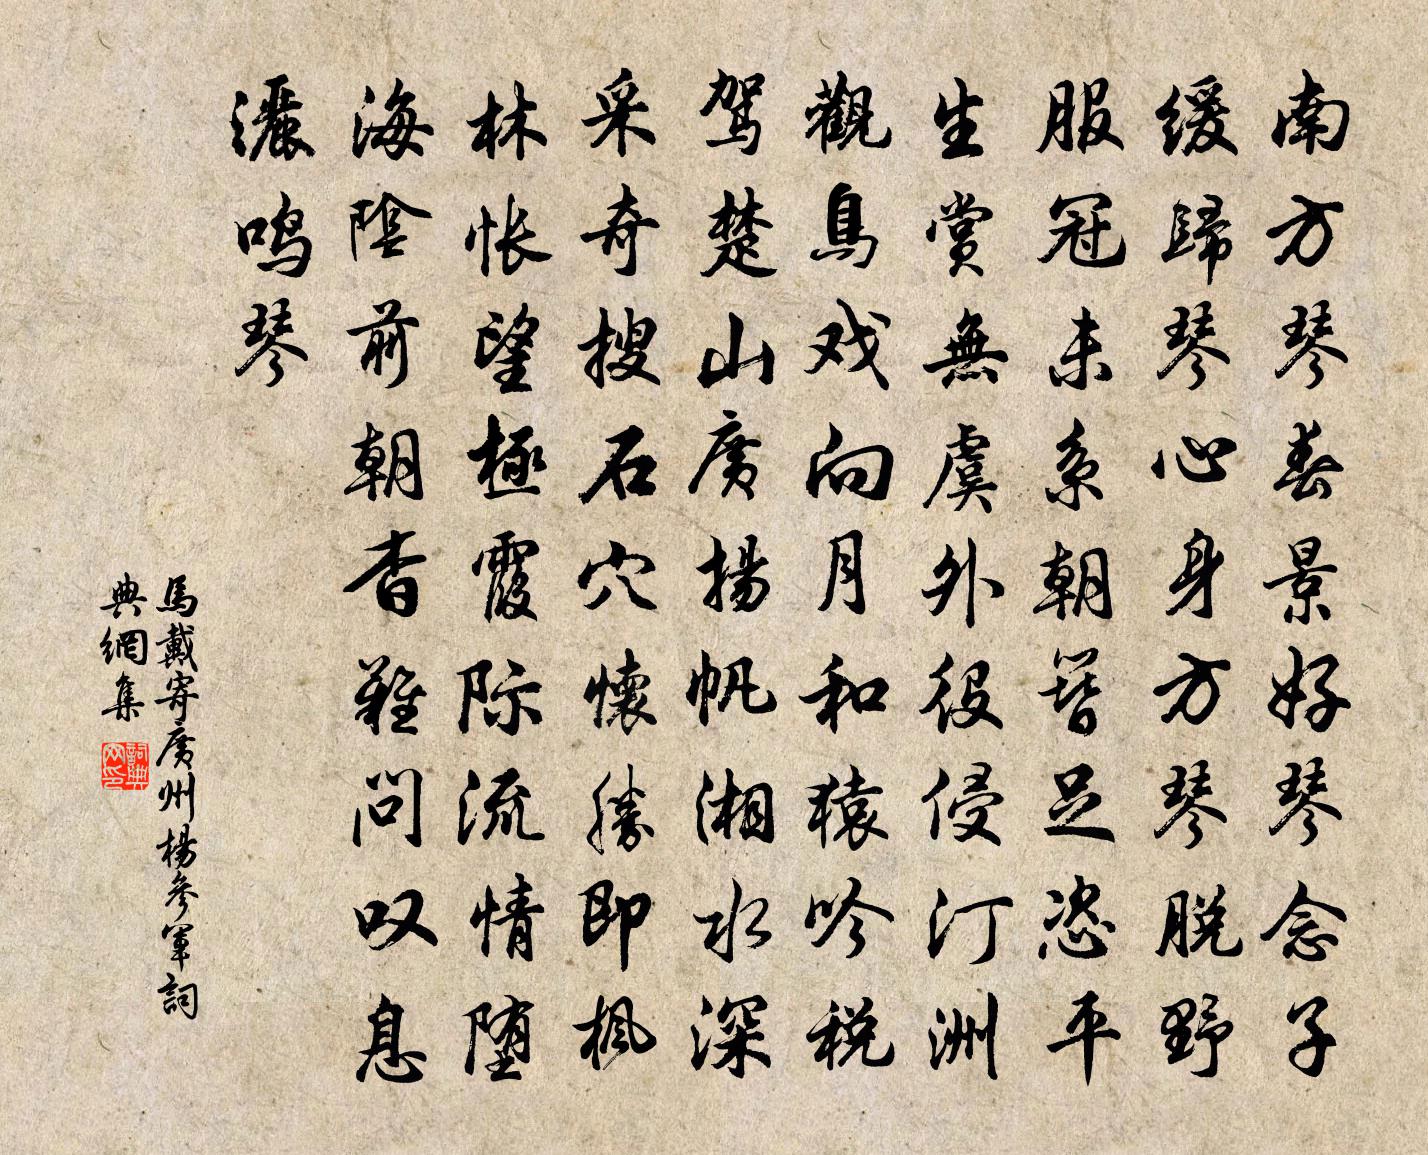 南方琴春景好琴念子
缓歸琴心身方琴脱野
服冠未系朝簪足恣平
生賞無虞外役侵汀洲
觀鳥戏向月和猿吟税
驾楚山廣揚帆湘水深
采奇搜石穴懷勝即枫
林怅望極霞际流情堕
海陰前朝杳難问叹息
灑鸣琴
馬戴寄廣州楊參軍詞
典網集
詞典
网印